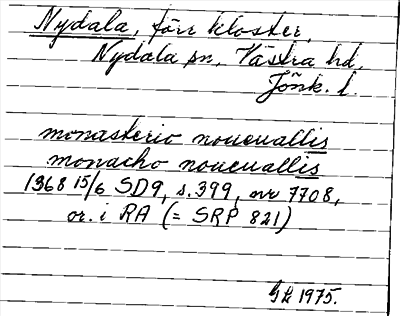 Nydala, förr kloster,
Nydala sn, Västra hd,
Jönk. l.
monasterio noueuallis
monacho noueuallis
1368 15/6 SD9, s. 399, nr 7708,
or. i RA (= SRP 821)
GL 1975.